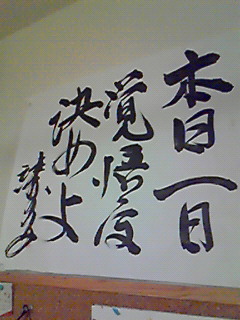 本日一日
覚悟を
決めよ